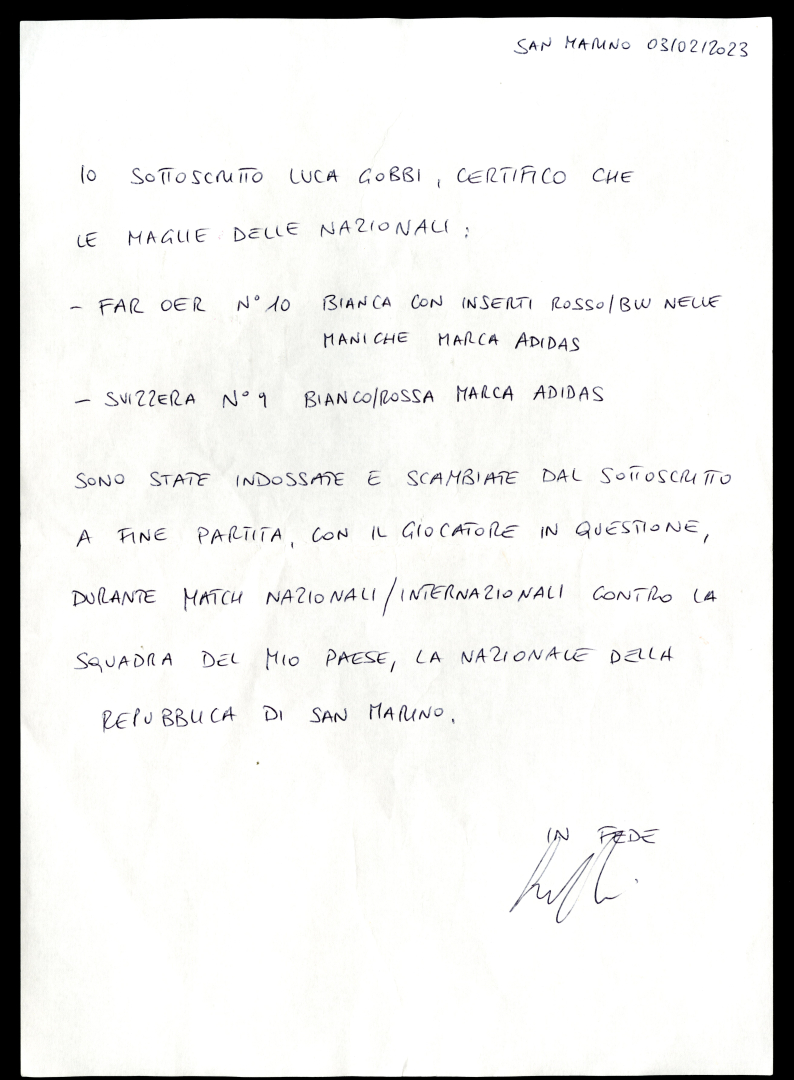 SAN MARINO 03/02/2023
IO SOTTOSCRITTO LUCA GOBBI, CERTIFICO CHE
LE MAGLIE DELLE NAZIONALI:
- FAR OER N° 10 BIANCA CON INSERTI ROSSO/BLU NELLE
MANICHE MARCA ADIDAS
- SVIZZERA N° 9 BIANCO/ROSSA MARCA ADIDAS
SONO STATE INDOSSATE E SCAMBIATE DAL SOTTOSCRITTO
A FINE PARTITA, CON IL GIOCATORE IN QUESTIONE,
DURANTE MATCH NAZIONALI/INTERNAZIONALI CONTRO LA
SQUADRA DEL MIO PAESE, LA NAZIONALE DELLA
REPUBBLICA DI SAN MARINO.
IN FEDE